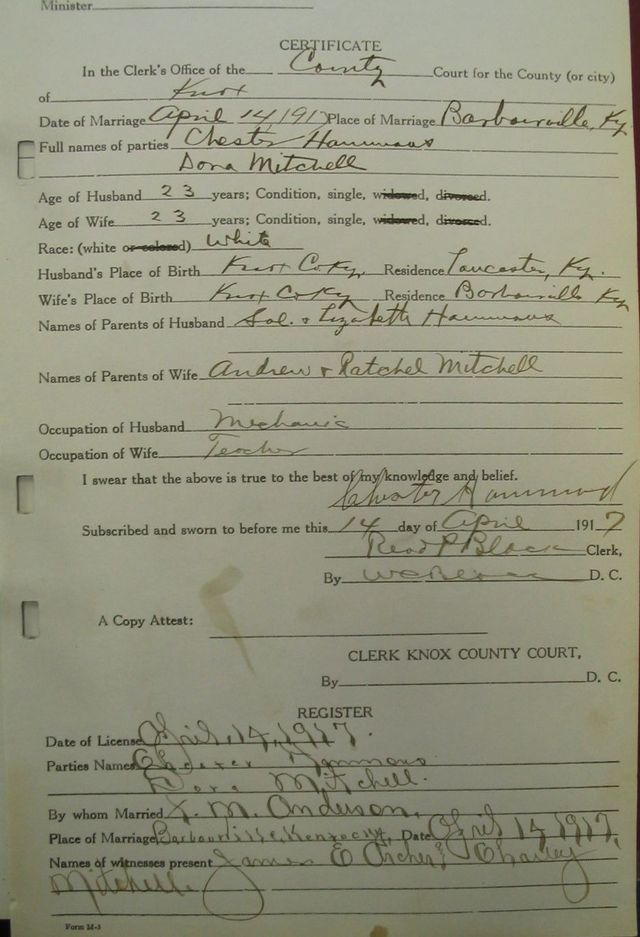 Minister
CERTIFICATE
In the Clerk's Office of the County Court for the County (or city)
of Knox
Date of Marriage April 14 1917 Place of Marriage Barbourville, Ky
Full names of parties Chester Hammons
Dora Mitchell
Age of Husband 23 years; Condition, single, widowed, divorced.
Age of Wife 23 years; Condition, single, widowed, divorced.
Race: (white or colored) White
Husband's Place of Birth Knox Co Ky, Residence Lancaster, Ky.
Wife's Place of Birth Knox Co Ky Residence Barbourville Ky
Names of Parents of Husband Sol. & Lizabeth Hammons
Names of Parents of Wife Andrew & Ratchel Mitchell
Occupation of Husband Mechanic
Occupation of Wife Teacher
I swear that the above is true to the best of my knowledge and belief.
Chester Hammond
Subscribed and sworn to before me this 14 day of April 1917
Read P Black Clerk,
By D. C.
A Copy Attest:
CLERK KNOX COUNTY COURT,
By D. C.
REGISTER
Date of License April, 14, 1917.
Parties Names Hammons
Dora Mitchell.
By whom Married J. M. Anderson,
Place of Marriage Barbourville Kentucky, Date April 14 1917,
Names of witnesses present James E Archer & Charley
Mitchell
Form M-3